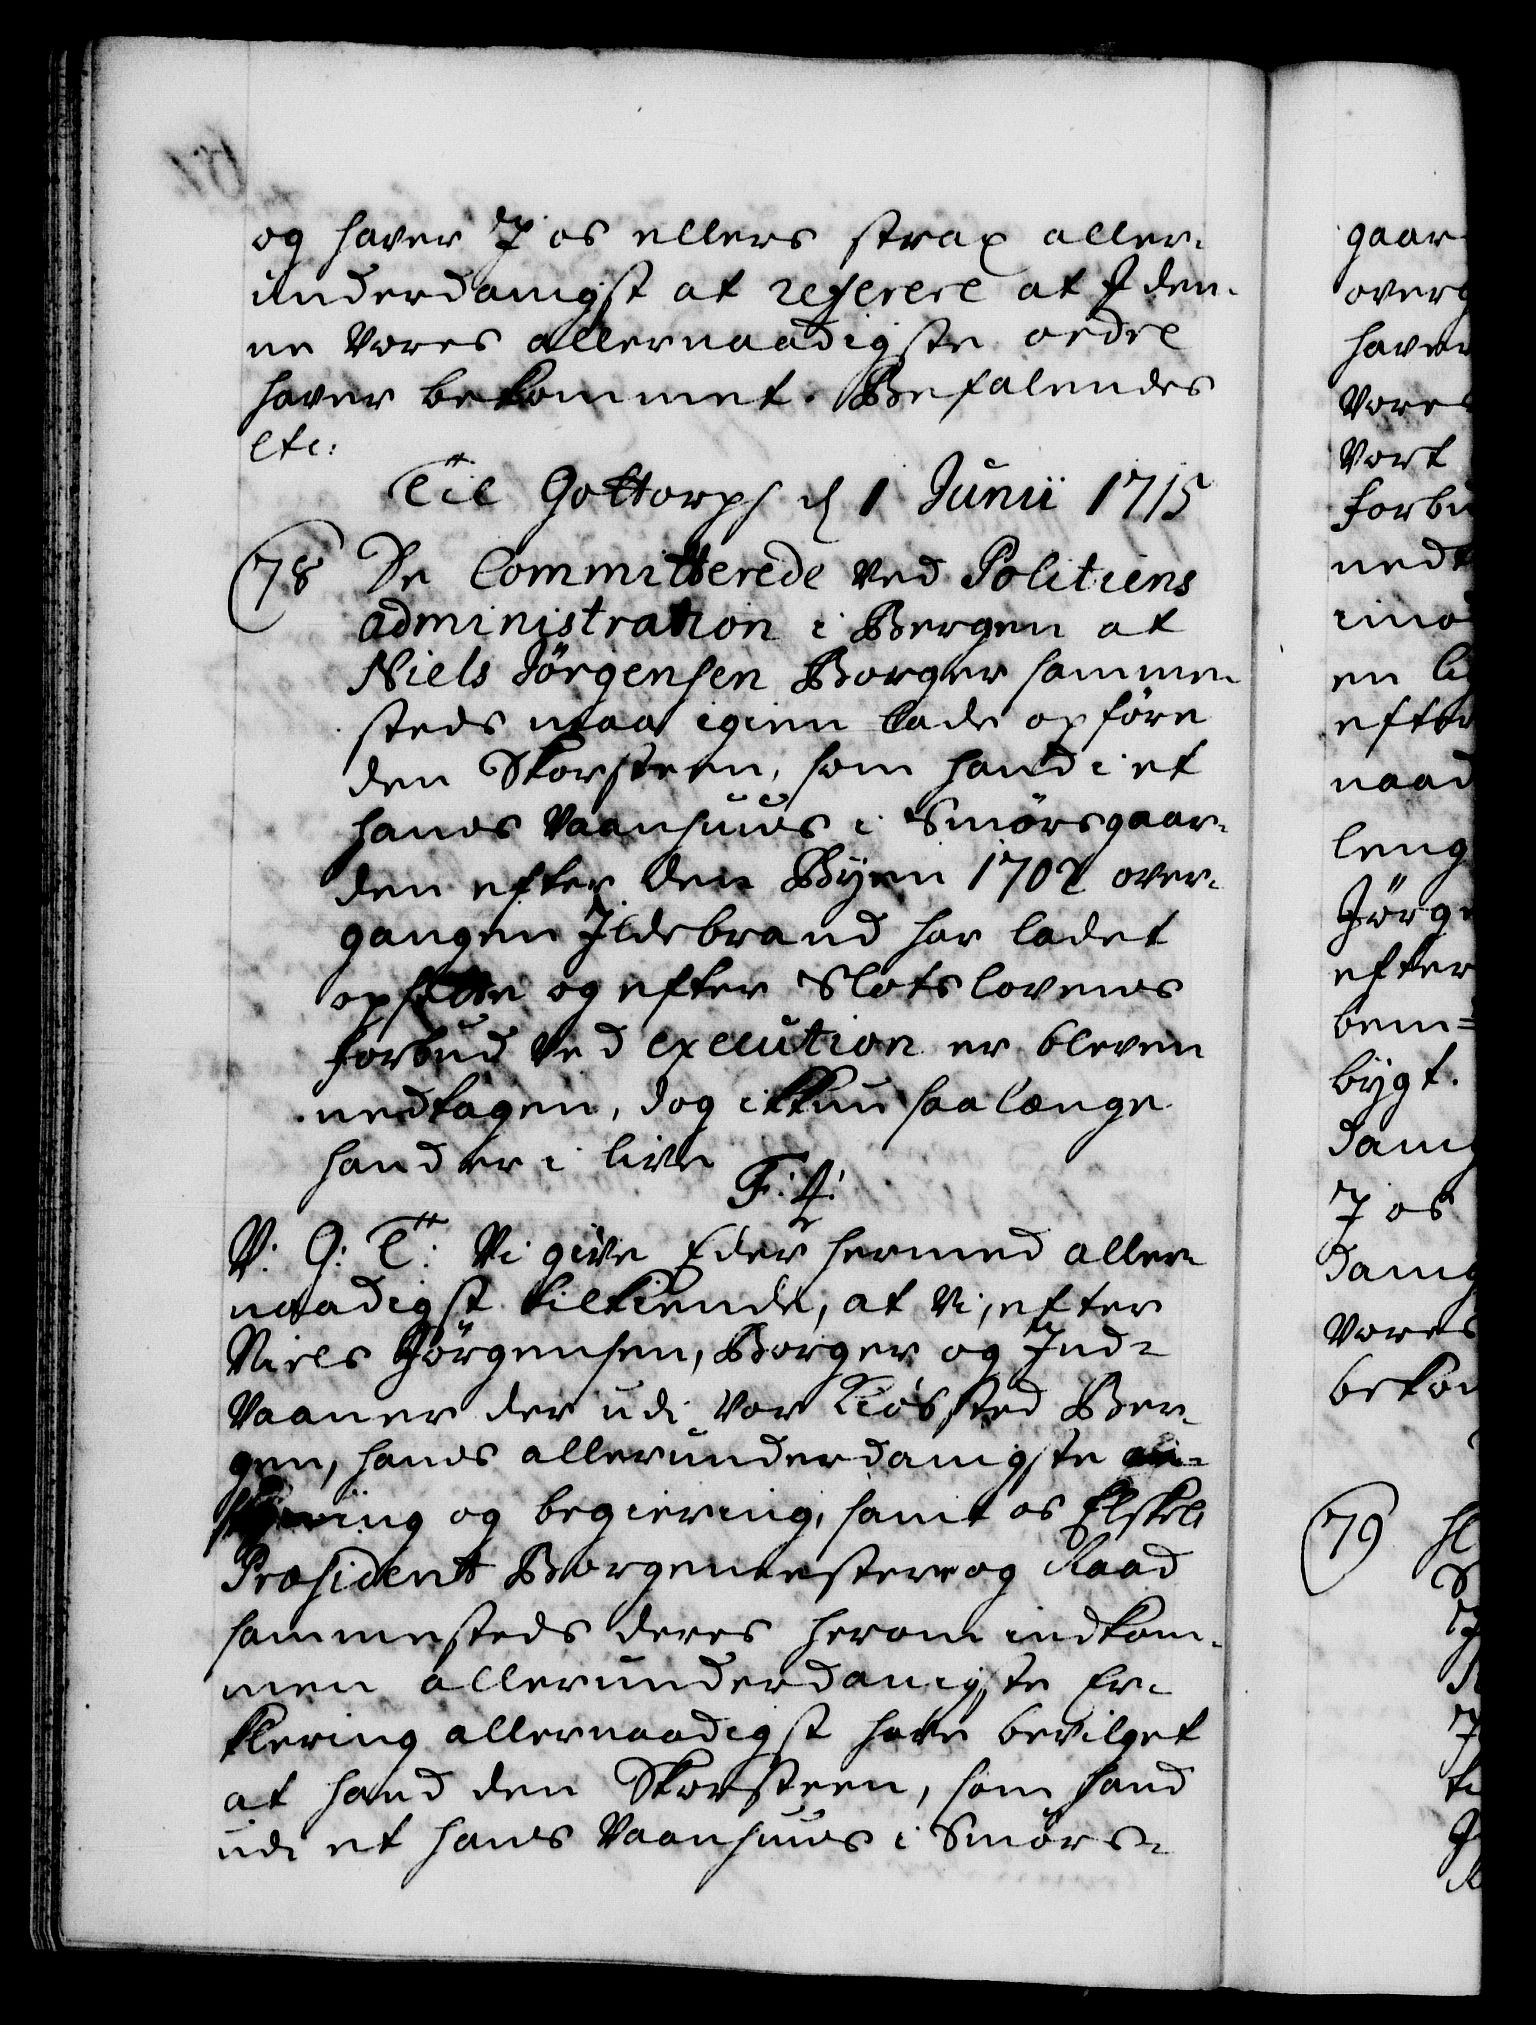 og haver I os ellers strax aller-
underdanigst at referere at I den-
ne Vores allernaadigste ordre
haver bekommet. Befalendes
etc:
Til Gottorph d 1 Junii 1715
78 De Committerede ved Politiens
administration i Bergen at
Niels Jörgensen Borger sammen-
steds maa igien lade opföre
den Skorsteen, som hand i et
hans Vaanhuus i Smörsgaar-
den efter den Byen 1702 over-
gangen Ildebrand har ladet
opsette og efter Slotslovens
forbud ved execution er bleven
nedtagen, dog ikkun saa længe
hand er i live
F: 4:
V. G: T: Vi give Eder hermed aller-
naadigst tilkiende, at Vi, efter
Niels Jörgensen, Borger og Ind-
Vaaner der udi Vor Kiöbsted Ber-
gen, hans allerunderdanigste an-
sögning og begiering, samt os Elskel:
Præsident Borgemestere og Raad
sammesteds deres herom indkom-
men allerunderdanigste Er-
klering allernaadigst have bevilget
at hand den Skorsteen, som hand
udi et hans Vaanhuus i Smörs-
gaar
over
haver
Vores
Vort
forbu
nedt
en
efter
naad
leng
Jörge
efter
bem=
bygt.
dani
I os
dani
Vores
bekom
79